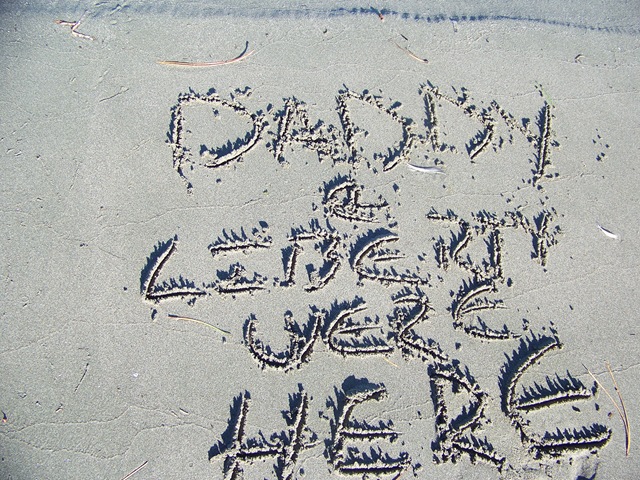 DADDY
&
LIBERTY
WERE
HERE